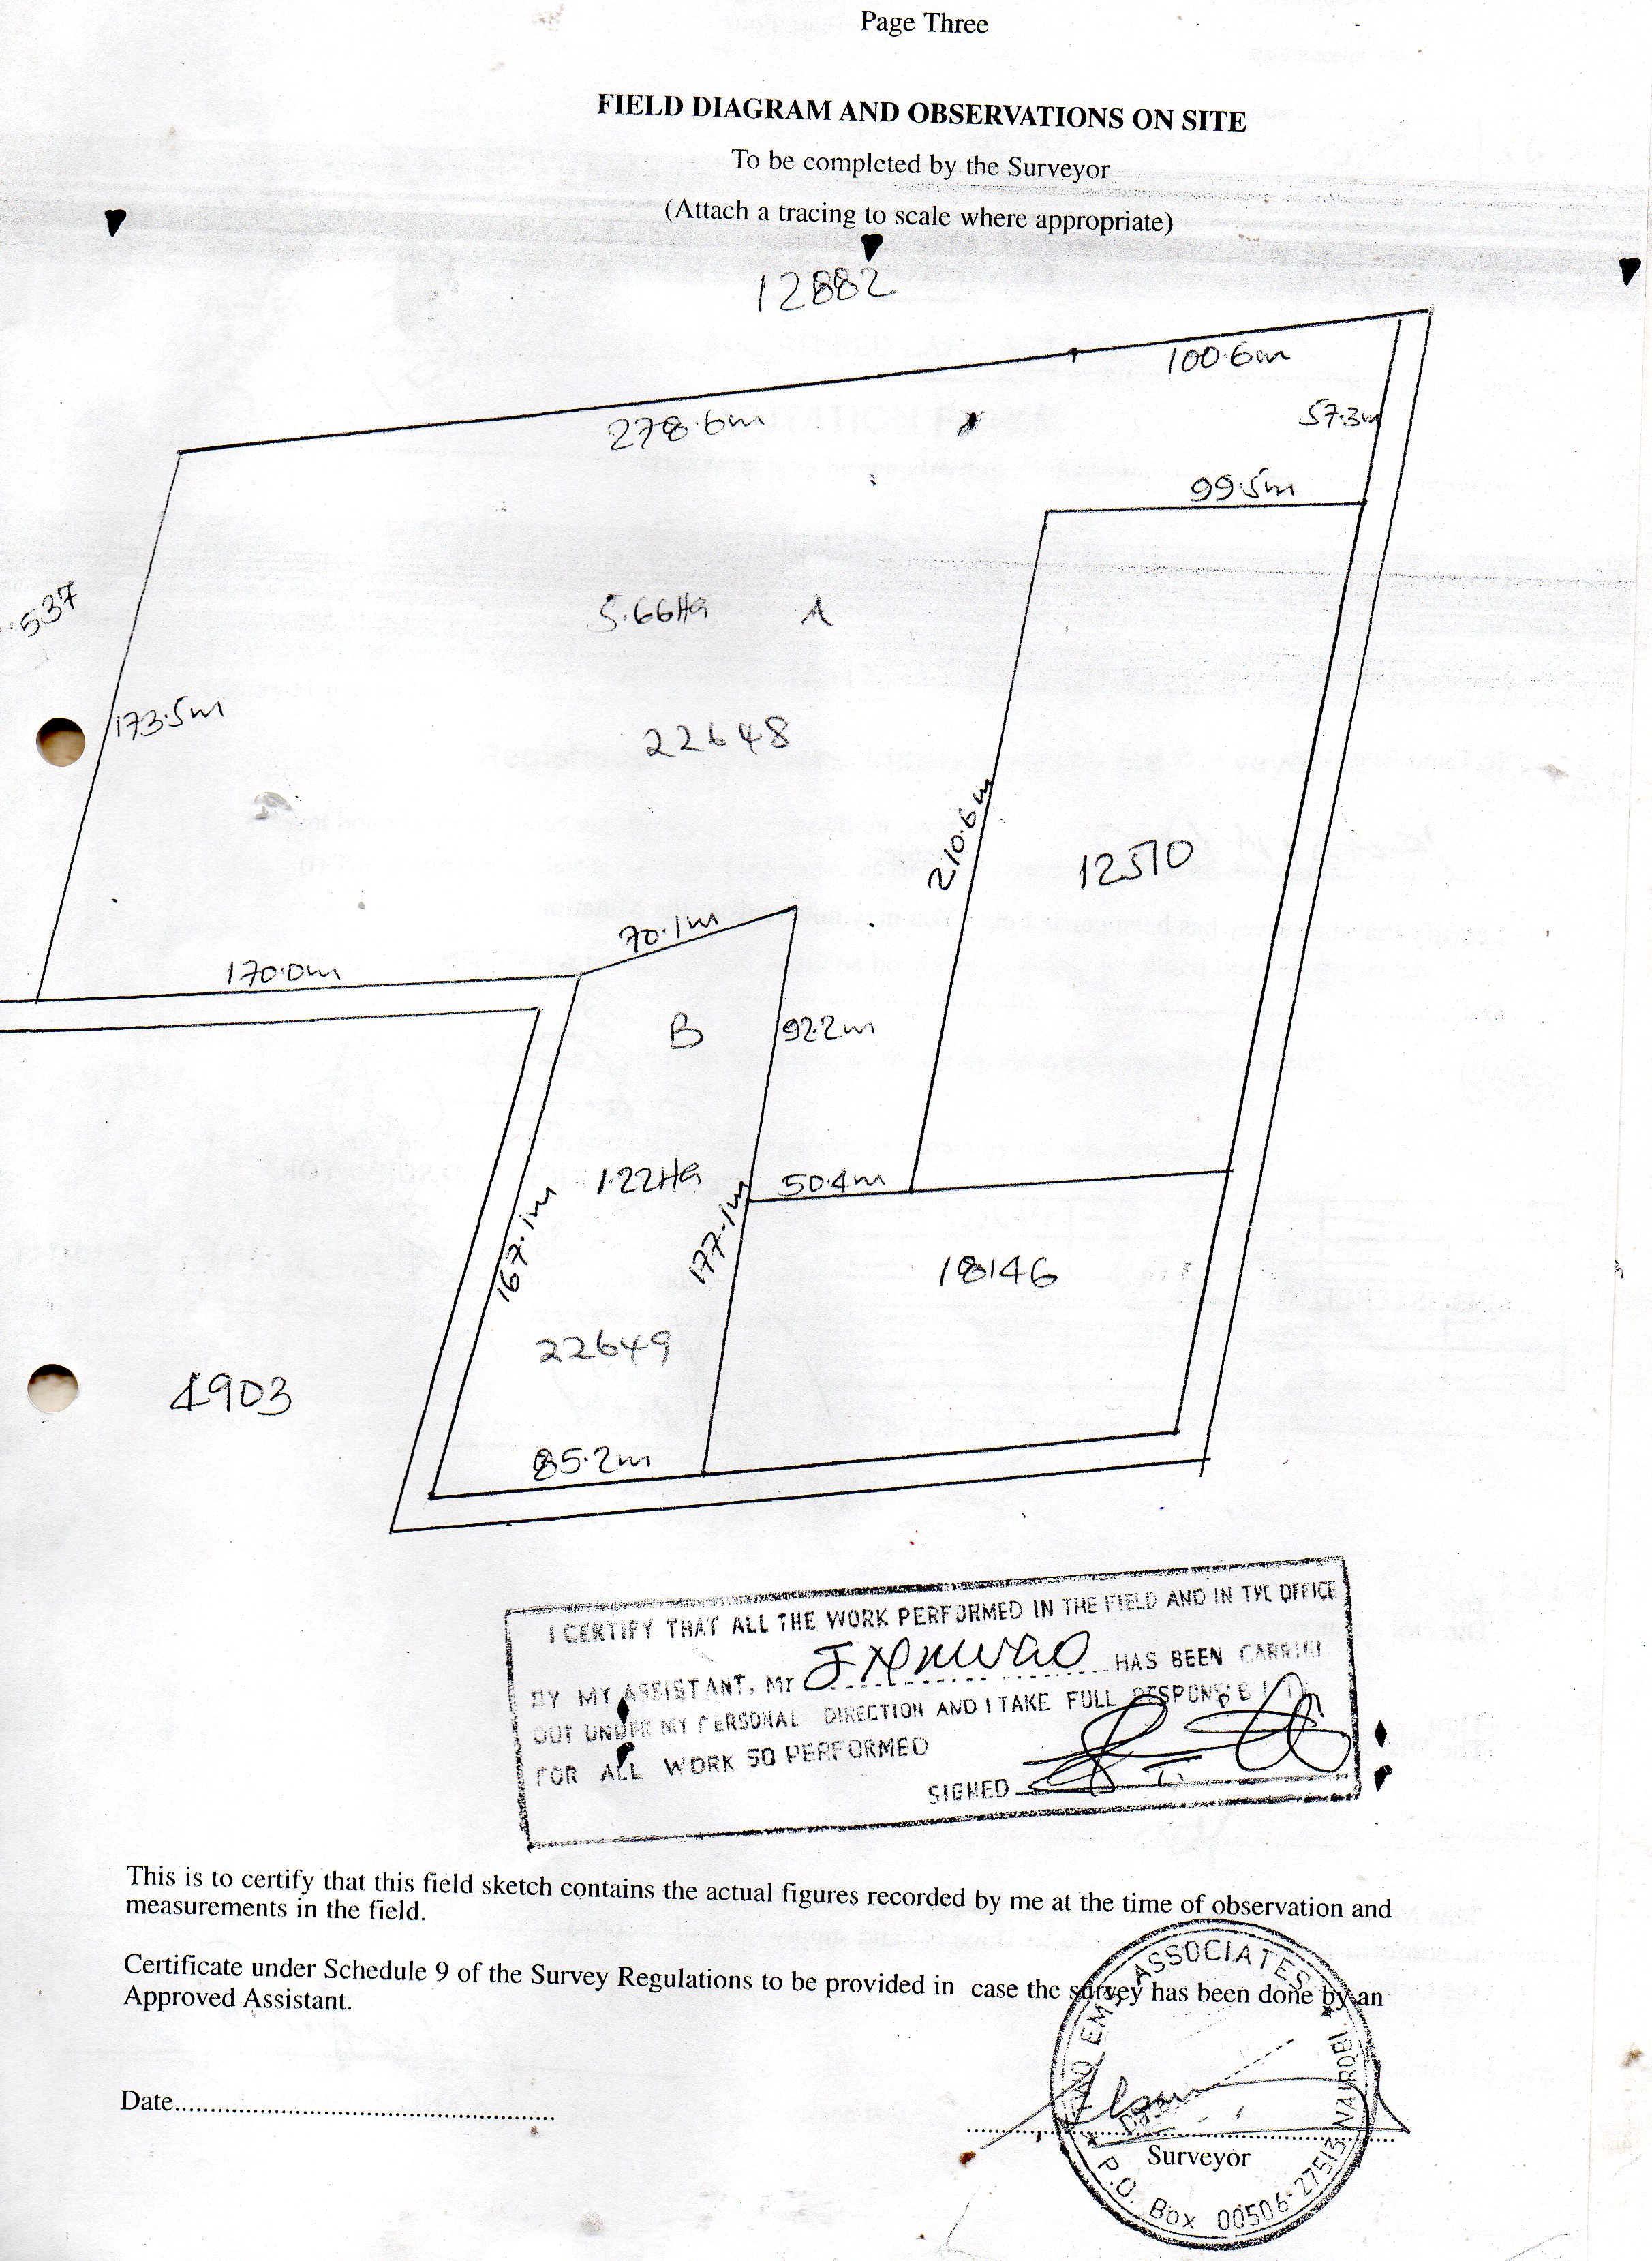 Page Three
FIELD DIAGRAM AND OBSERVATIONS ON SITE
To be completed by the Surveyor
(Attach a tracing to scale where appropriate)
12882
100.6m
278.6m
57.3m
99.5m
537
5.66Ha A
173.5m
22648
210.6m
12570
70.1m
170.0m
B
92.2m
1.22Ha
50.4m
167.1m
177.1m
18146
22649
4903
85.2m
I CERTIFY THAT ALL THE WORK PERFORMED IN THE FIELD AND IN THE OFFICE
BY MY ASSISTANT, Mr HAS BEEN CARRIED
OUT UNDER MY PERSONAL DIRECTION AND I TAKE FULL
FOR ALL WORK SO PERFORMED
SIGNED
This is to certify that this field sketch contains the actual figures recorded by me at the time of observation and
measurements in the field.
Certificate under Schedule 9 of the Survey Regulations to be provided in case the survey has been done by an
Approved Assistant.
Date
Surveyor
ASSOCIATES
Date
P.O. Box 00506-27513 NAIROBI